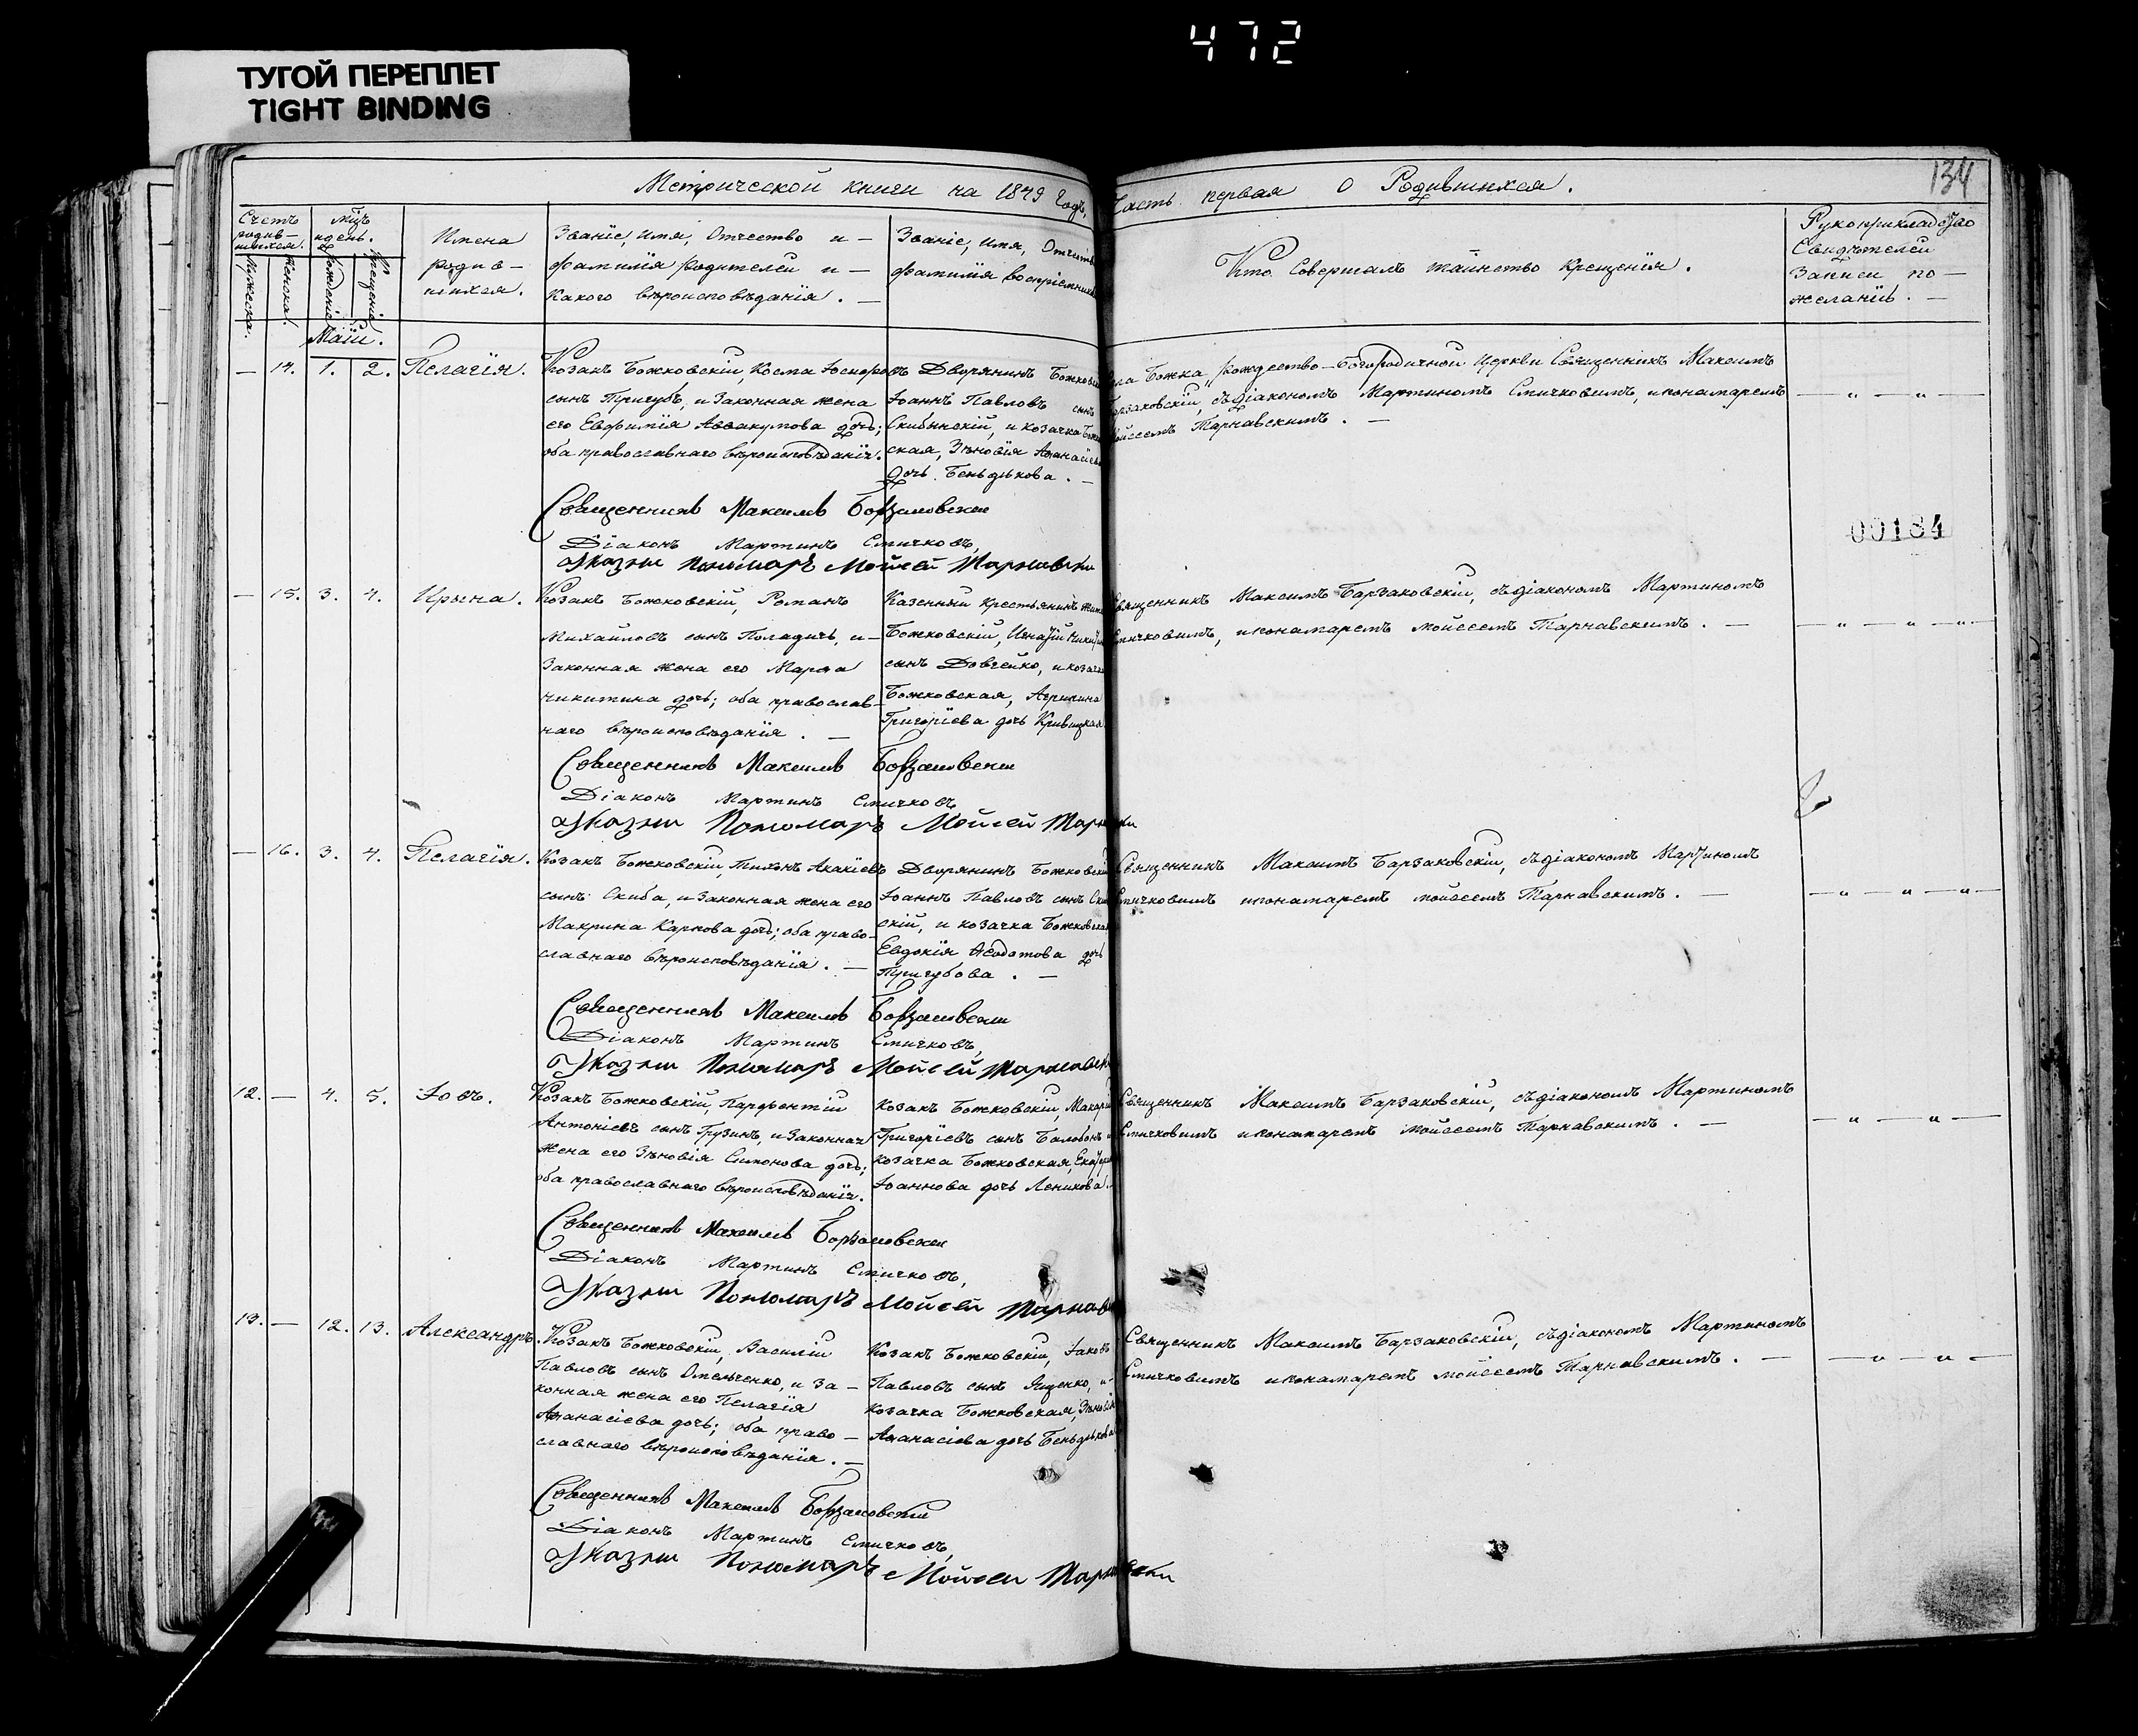 472
ТУГОЙ ПЕРЕПЛЕТ
TIGHT BINDING
134
Метрической книги на 1849 Годъ, Часть первая о Родившихся.
Счетъ родив-шихся.
Мужеска.
Женска.
мцъ и день.
Рожденія
Крещенія
Имена
родив-
шихся.
Званіе, Имя, Отчество и -
фамилія Родителей и -
Какого вѣроисповѣданія. —
Званіе, имя, Отчество
фамилія воспріемниковъ
Кто совершалъ таинство Крещенія.
Рукоприкладство
Свидѣтелей
Записи по -
желанію. —
Маій.
— 14. 1. 2. Пелагія.
Козакъ Божковскій, Косма Іосифовъ
сынъ Тригубъ, и Законная жена
его Евфимія Аввакумова дочь;
оба православнаго вѣроисповѣданія.
Дворянинъ Божковскій
Іоаннъ Павловъ сынъ
Скибинскій, и козачка Божков
ская, Зѣновія Афанасіева
дочь Беньдикова. —
Села Божка, Рождество-Богородичной Церкви Священникъ Максимъ
Барзаковскій, съ діакономъ Мартиномъ Смичковымъ, и понамаремъ
Мойсеемъ Тарнавскимъ. —
— „ — „ —
Священникъ Максимъ Борзаковскій
Діаконъ Мартинъ Смичковъ,
Указный Пономарь Мойсей Тарнавскій
00184
— 15. 3. 4. Ирына.
Козакъ Божковскій, Романъ
Михайловъ сынъ Поладичъ, и -
Законная жена его Марфа
Никитина дочь; оба православ-
наго вѣроисповѣданія. —
Казенный крестьянинъ жит
Божковскій, Игнатій Никит
сынъ Довгейко, и козачка
Божковская, Агрипина
Григоріева дочь Кривицкая
Священникъ Максимъ Барзаковскій, съ діакономъ Мартиномъ
Смичковымъ, и понамаремъ мойсеемъ Тарнавскимъ. —
— „ — „ — „ —
Священникъ Максимъ Борзаковскій
Діаконъ Мартинъ Смичковъ,
Указный Пономарь Мойсей Тарнавскій
— 16. 3. 4. Пелагія.
Козакъ Божковскій, Тихонъ Акакіевъ
сынъ Скиба, и Законная жена его
Макрина Карпова дочь; оба право-
славнаго вѣроисповѣданія. —
Дворянинъ Божковскій
Іоаннъ Павловъ сынъ Скибин
скій, и козачка Божковская
Евдокія Феодотова дочь
Тригубова. —
Священникъ Максимъ Барзаковскій, съ діакономъ Мартиномъ
Смичковымъ и понамаремъ мойсеемъ Тарнавскимъ. —
— „ — „ — „ —
Священникъ Максимъ Борзаковскій
Діаконъ Мартинъ Смичковъ,
Указный Пономарь Мойсей Тарнавскій
12. — 4. 5. Іовъ.
Козакъ Божковскій, Парфентій
Антоніевъ сынъ Грузинъ, и Законная
жена его Зѣновія Симонова дочь;
оба православнаго вѣроисповѣданія.
Козакъ Божковскій, Макарій
Григоріевъ сынъ Балобонъ и
козачка Божковская, Екатерина
Іоаннова дочь Леникова.
Священникъ Максимъ Барзаковскій, съ діакономъ Мартиномъ
Смичковымъ и понамаремъ Мойсеемъ Тарнавскимъ. —
— „ — „ —
Священникъ Максимъ Борзаковскій
Діаконъ Мартинъ Смичковъ,
Указный Пономарь Мойсей Тарнавскій
13. — 12. 13. Александръ.
Козакъ Божковскій, Василій
Павловъ сынъ Омельченко, и за -
конная жена его Пелагія
Афанасіева дочь; оба право -
славнаго вѣроисповѣданія. —
Козакъ Божковскій, Іаковъ
Павловъ сынъ Ященко, и -
козачка Божковская, Зѣновія
Афанасіева дочь Беньдикова
Священникъ Максимъ Барзаковскій, съ діакономъ Мартиномъ
Смичковымъ и понамаремъ мойсеемъ Тарнавскимъ. —
— „ — „ —
Священникъ Максимъ Борзаковскій
Діаконъ Мартинъ Смичковъ,
Указный Пономарь Мойсей Тарнавскій